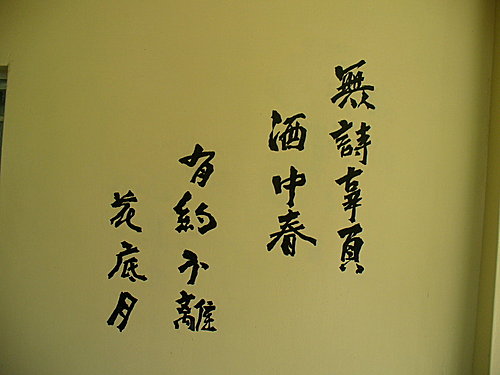 無詩辜負
酒中春
有約不離
花底月